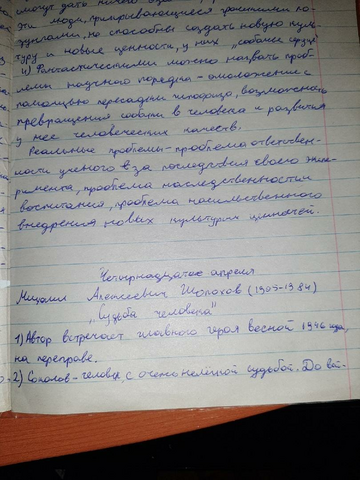 могут дать ничего
эти люди, прикрывающиеся громкими ло-
зунгами, не способны создать новую куль-
туру и новые ценности, у них „собачье сердце"
4) Фантастическими можно назвать проб-
лемы научного порядка - омоложение с
помощью пересадки гипофиза, возможного
превращения собаки в человека и развития
у нее человеческих качеств.
Реальные проблемы - проблема ответствен-
ности ученого за последствия своего экспе-
римента, проблема наследственности и
воспитания, проблема насильственного
внедрения новых культурных ценностей.
Четырнадцатое апреля
Михаил Алексеевич Шолохов (1905-1984)
„Судьба человека"
1) Автор встречает главного героя весной 1946 года,
на переправе.
2) Соколов - человек, с очень нелёгкой судьбой. До вой-